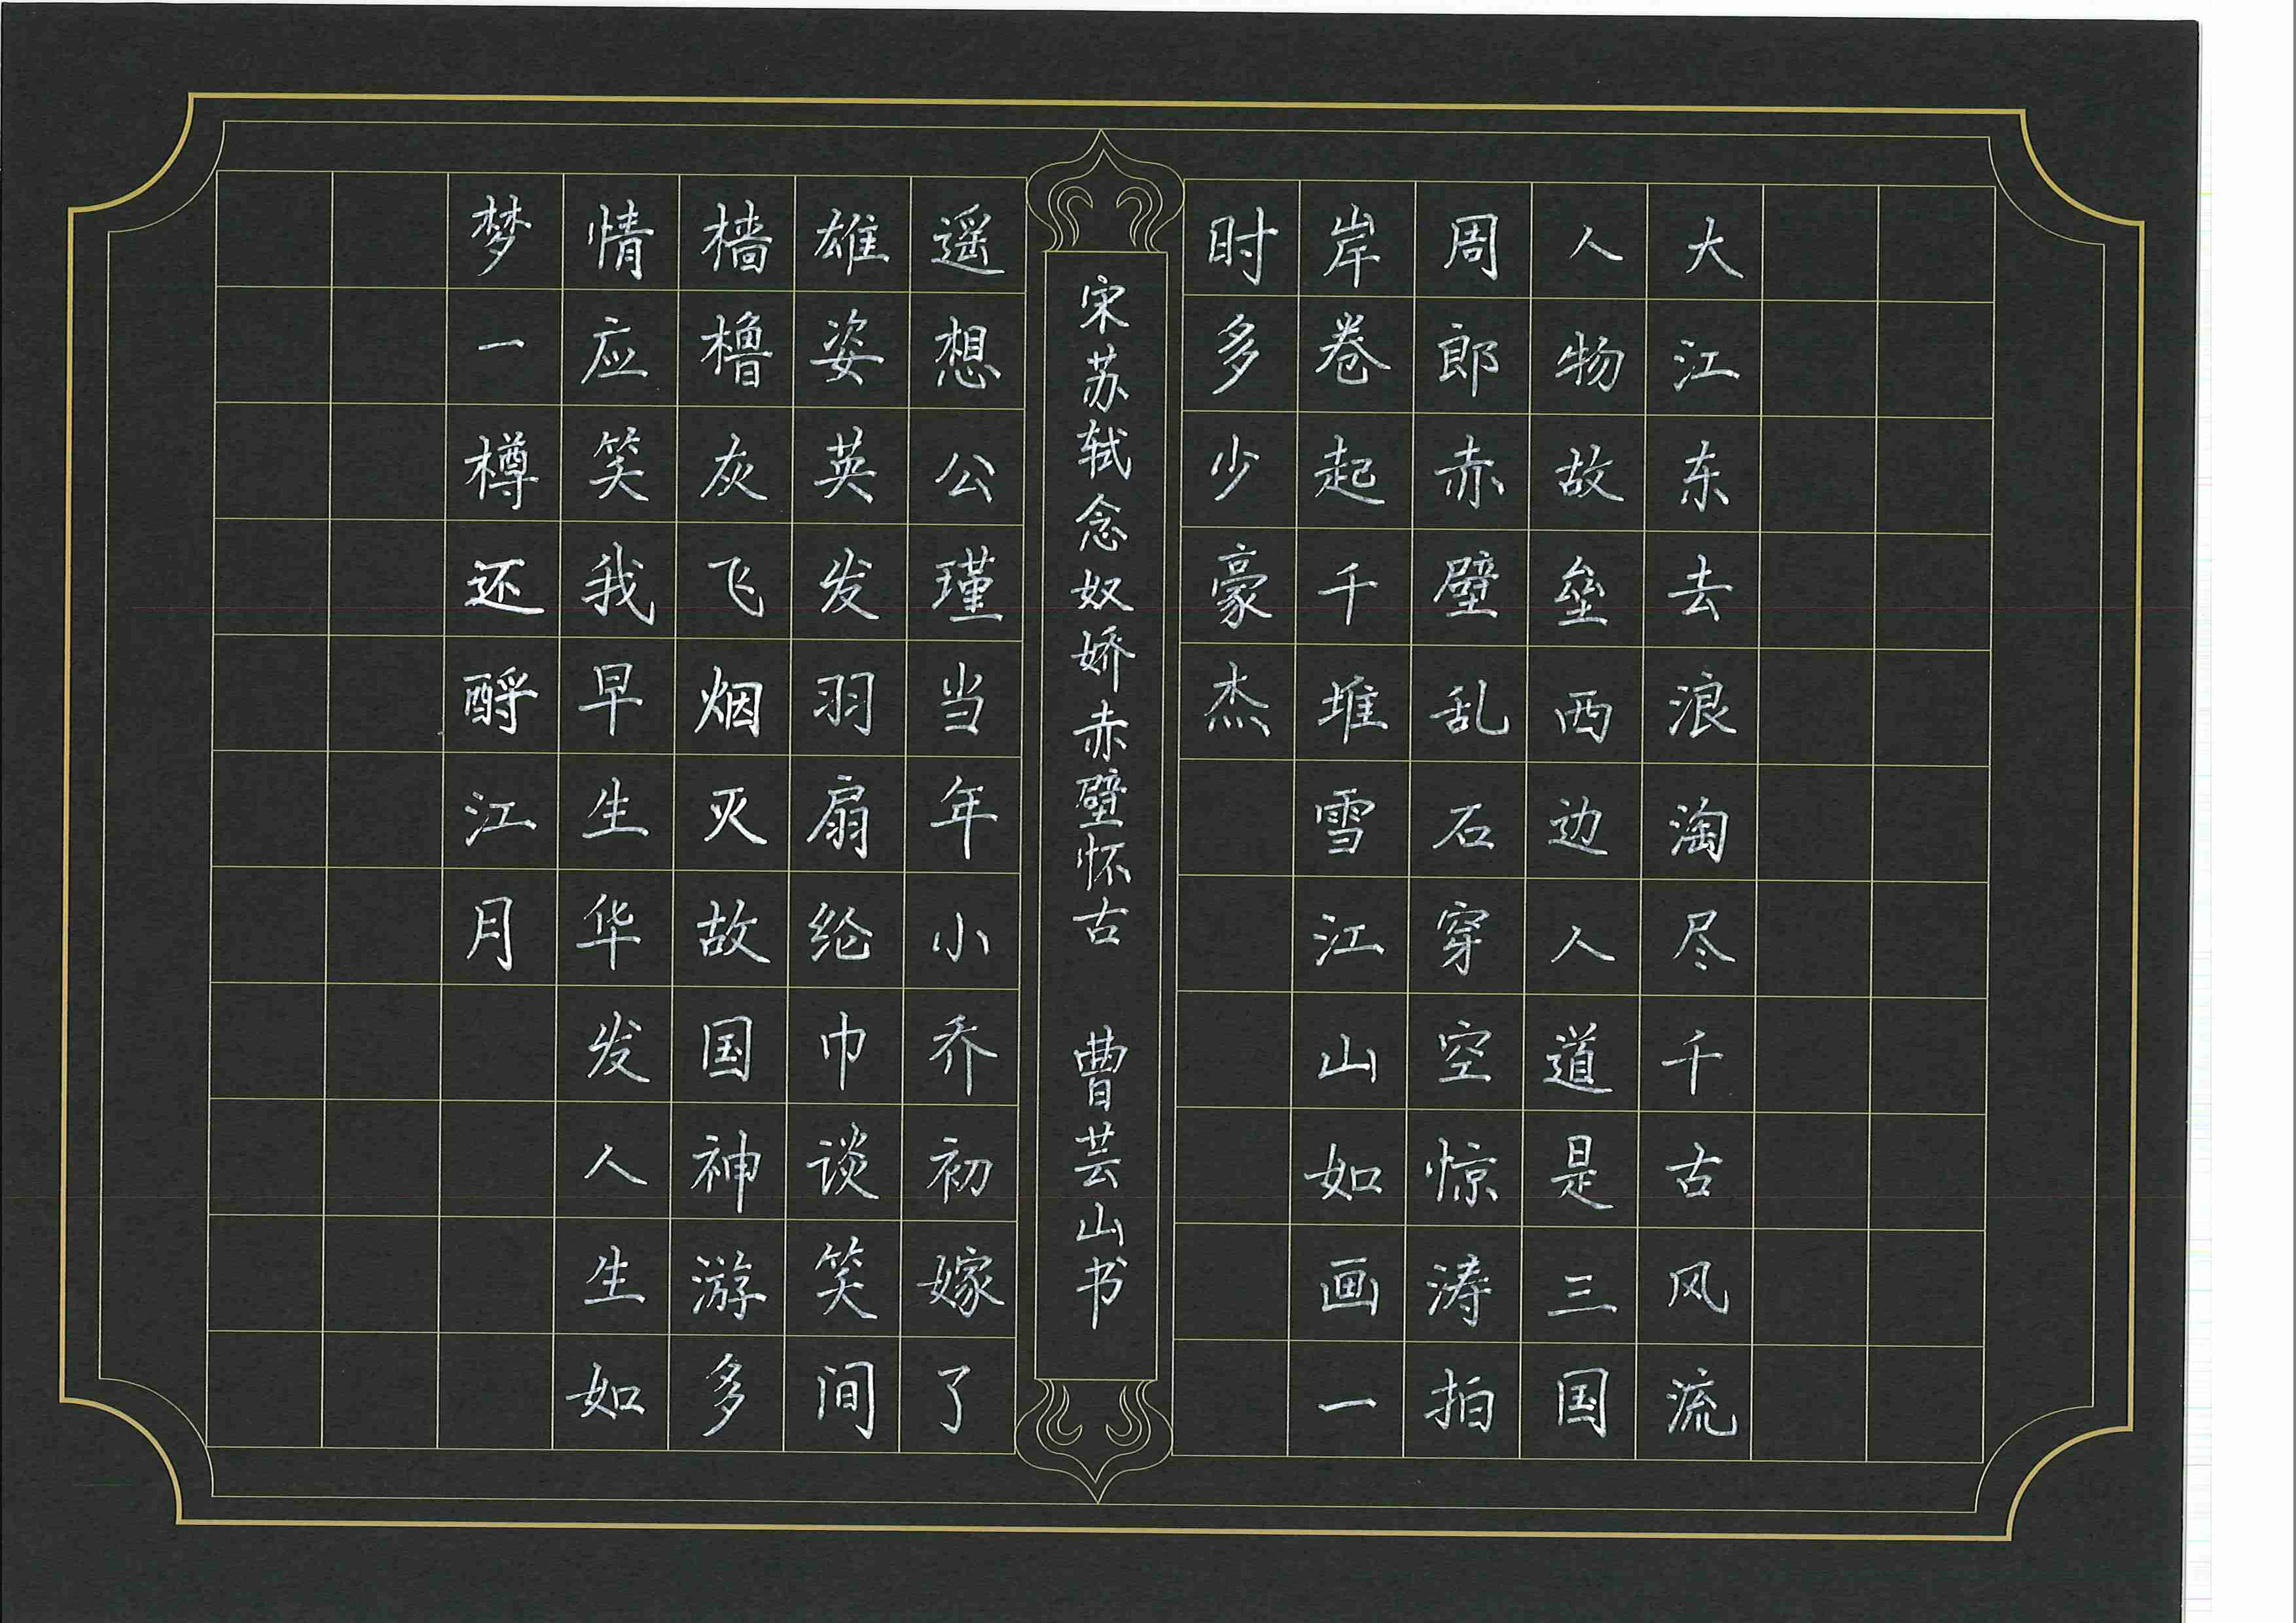 大江东去浪淘尽千古风流
人物故垒西边人道是三国
周郎赤壁乱石穿空惊涛拍
岸卷起千堆雪江山如画一
时多少豪杰
宋苏轼念奴娇赤壁怀古 曹芸山书
遥想公瑾当年小乔初嫁了
雄姿英发羽扇纶巾谈笑间
樯橹灰飞烟灭故国神游多
情应笑我早生华发人生如
梦一樽还酹江月